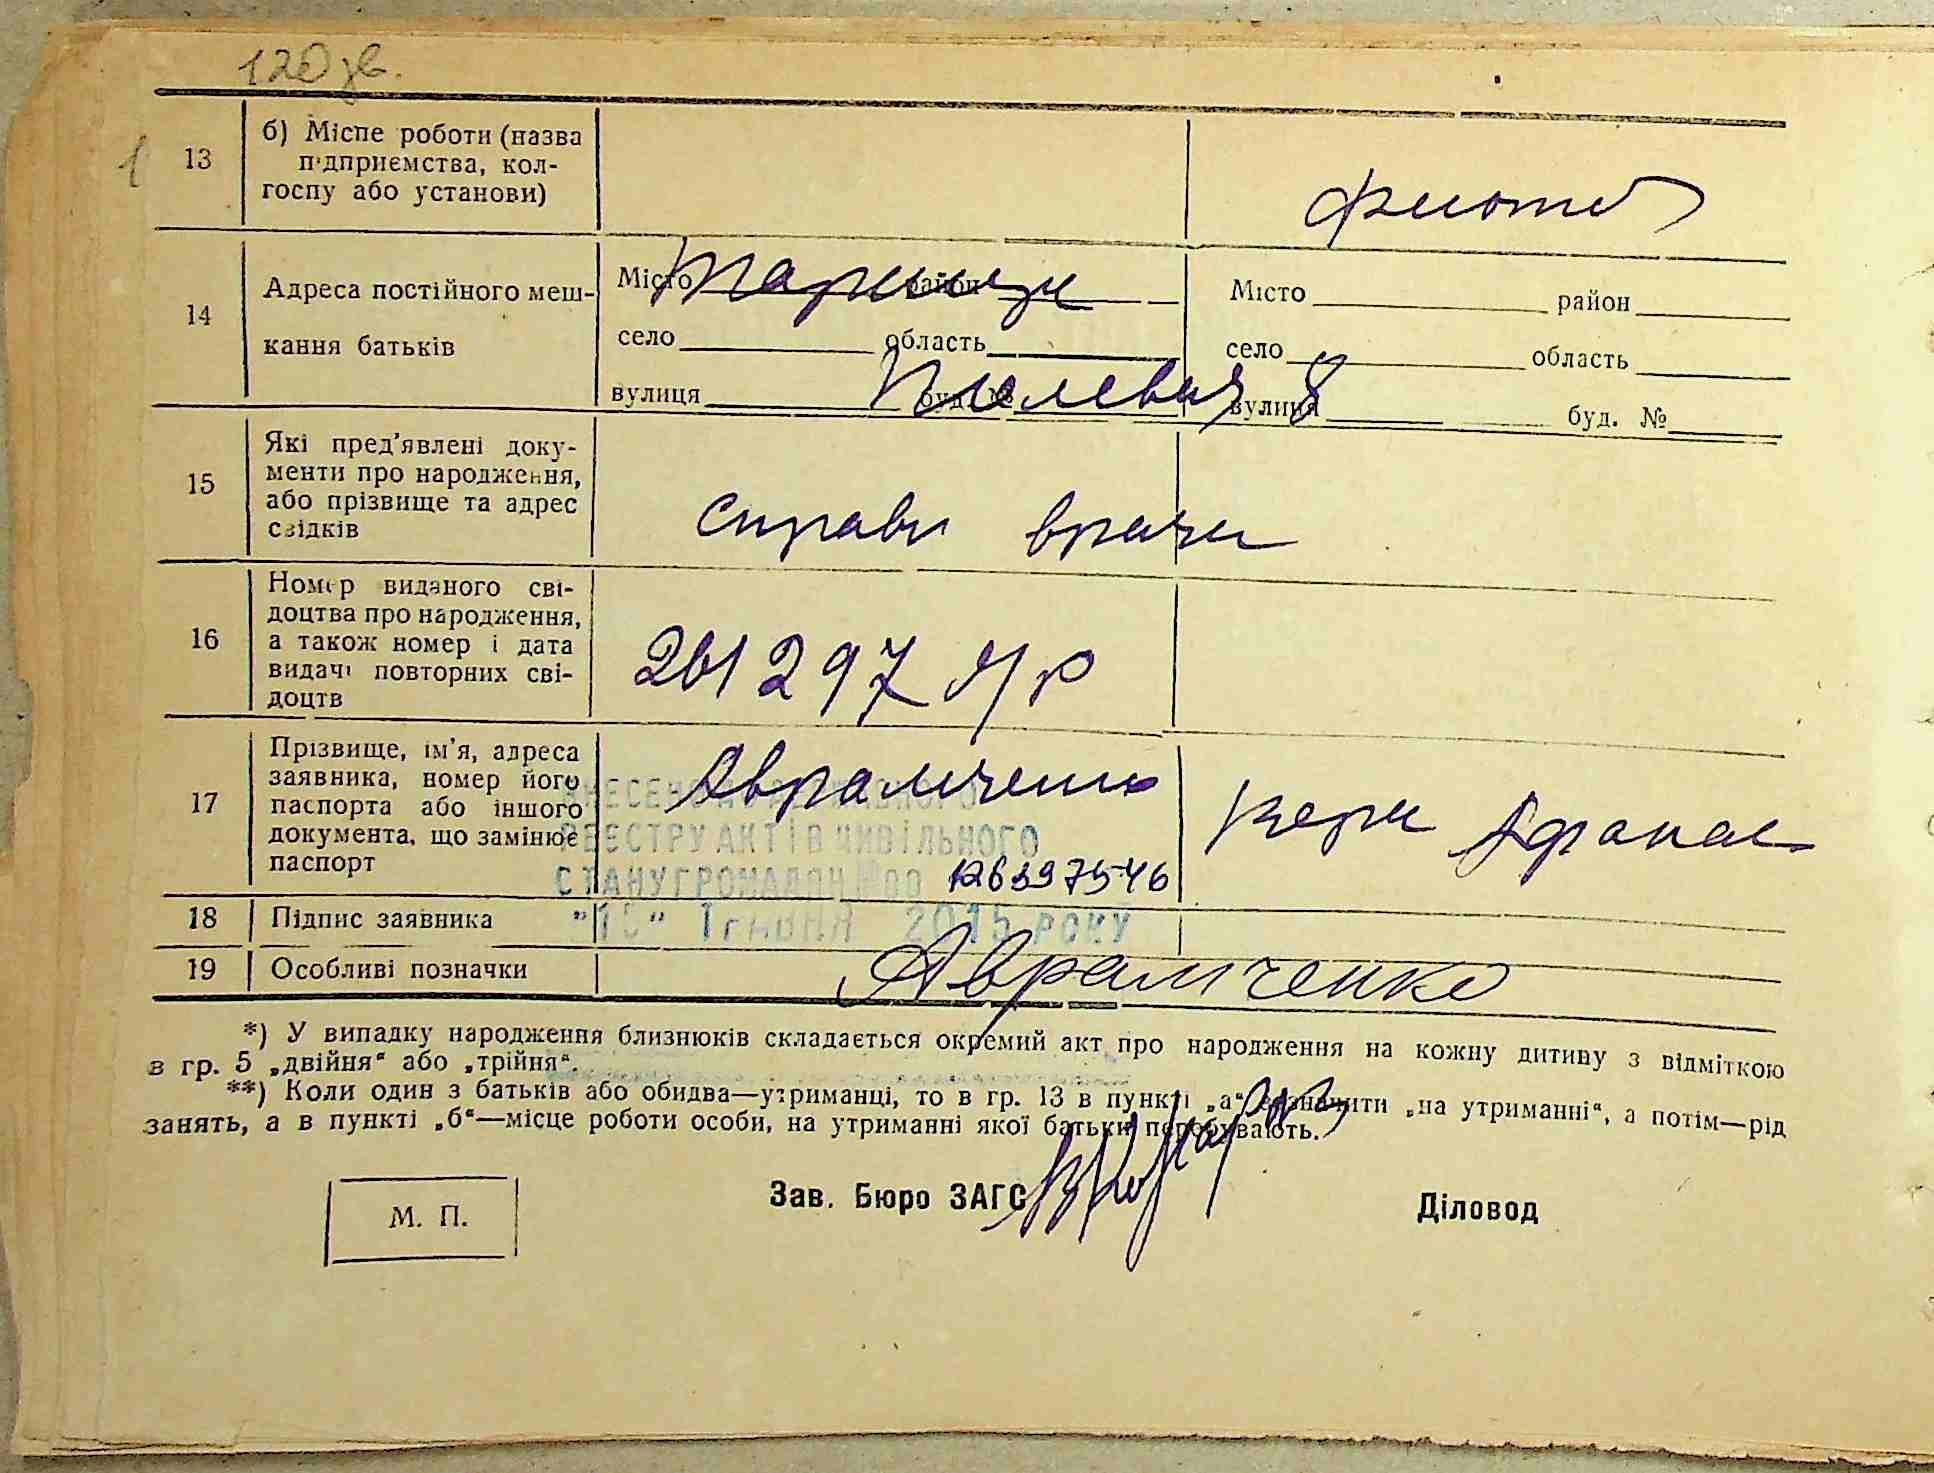 120 зв.
1
13
б) Місце роботи (назва
підприємства, кол-
госпу або установи)
14
Адреса постійного меш-
кання батьків
Місто район
село область
вулиця буд. №
Місто район
село область
вулиця буд. №
8
15
Які пред'явлені доку-
менти про народження,
або прізвище та адрес
свідків
справка врача
16
Номер виданого сві-
доцтва про народження,
а також номер і дата
видачі повторних сві-
доцтв
261297
17
Прізвище, ім'я, адреса
заявника, номер його
паспорта або іншого
документа, що замінює
паспорт
Аврамченко
Вера Афанас
ВНЕСЕНО ДО ДЕРЖАВНОГО
РЕЄСТРУ АКТІВ ЦИВІЛЬНОГО
СТАНУ ГРОМАДЯН №00 126397546
"15" ТРАВНЯ 2015 РОКУ
18
Підпис заявника
19
Особливі позначки
Аврамченко
*) У випадку народження близнюків складається окремий акт про народження на кожну дитину з відміткою
в гр. 5 „двійня“ або „трійня“.
**) Коли один з батьків або обидва—утриманці, то в гр. 13 в пункті „а“ зазначити „на утриманні“, а потім—рід
занять, а в пункті „б“—місце роботи особи, на утриманні якої батьки перебувають.
М. П.
Зав. Бюро ЗАГС
Діловод